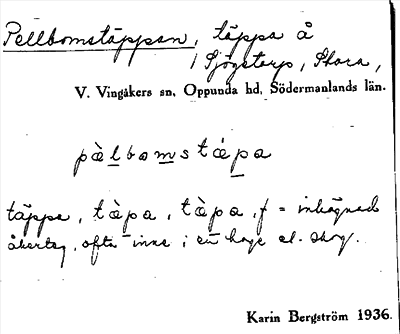 Pellbomstäppan, täppa å
/ Sjögetorp, Stora,
V. Vingåkers sn, Oppunda hd, Södermanlands län.
pàlbomstápa
täppa, tàpa, tàpa, f = inhägnad
åkerteg, ofta inne i en hage el. skog.
Karin Bergström 1936.